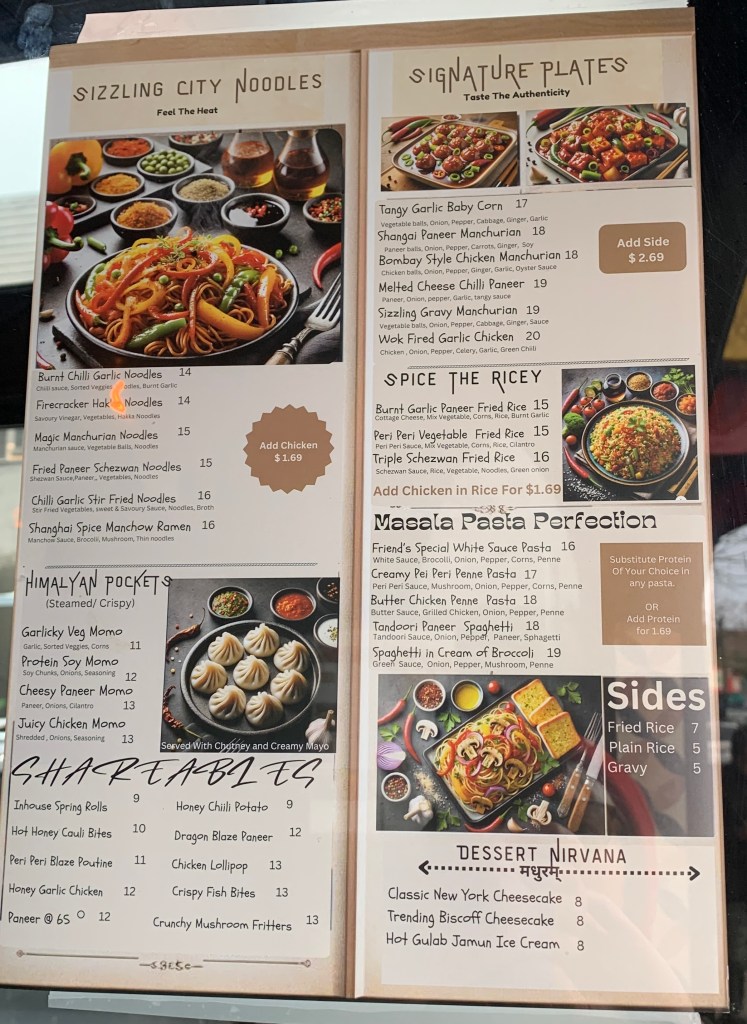 SIZZLING CITY NOODLES
Feel The Heat
Burnt Chilli Garlic Noodles 14
Chilli sauce, Sorted Veggies, Noodles, Burnt Garlic
Firecracker Hakka Noodles 14
Savoury Vinegar, Vegetables, Hakks Noodles
Magic Manchurian Noodles 15
Manchurian sauce, Vegetable Balls, Noodles
Fried Paneer Schezwan Noodles 15
Shezwan Sauce,Paneer,, Vegetables, Noodles
Chilli Garlic Stir Fried Noodles 16
Stir Fried Vegetables, sweet & Savoury Sauce, Noodles, Broth
Shanghai Spice Manchow Ramen 16
Manchow Sauce, Brocolli, Mushroom, Thin noodles
Add Chicken
$ 1.69
HIMALYAN POCKETS
(Steamed/ Crispy)
Garlicky Veg Momo
Garlic, Sorted Veggies, Corns 11
Protein Soy Momo
Soy Chunks, Onions, Seasoning 12
Cheesy Paneer Momo
Paneer, Onions, Cilantro 13
Juicy Chicken Momo
Shredded , Onions, Seasoning 13
Served With Chutney and Creamy Mayo
SHAREABLES
Inhouse Spring Rolls 9
Hot Honey Cauli Bites 10
Peri Peri Blaze Poutine 11
Honey Garlic Chicken 12
Paneer @ 65 O 12
Honey Chiili Potato 9
Dragon Blaze Paneer 12
Chicken Lollipop 13
Crispy Fish Bites 13
Crunchy Mushroom Fritters 13
SIGNATURE PLATES
Taste The Authenticity
Tangy Garlic Baby Corn 17
Vegetable balls, Onion, Pepper, Cabbage, Ginger, Garlic
Shangai Paneer Manchurian 18
Paneer balls, Onion, Pepper, Carrots, Ginger, Soy
Bombay Style Chicken Manchurian 18
Chicken balls, Onion, Pepper, Ginger, Garlic, Oyster Sauce
Melted Cheese Chilli Paneer 19
Paneer, Onion, pepper, Garlic, tangy sauce
Sizzling Gravy Manchurian 19
Vegetable balls, Onion, Pepper, Cabbage, Ginger, Sauce
Wok Fired Garlic Chicken 20
Chicken , Onion, Pepper, Celery, Garlic, Green Chilli
Add Side
$ 2.69
SPICE THE RICEY
Burnt Garlic Paneer Fried Rice 15
Cottage Cheese, Mix Vegetable, Corns, Rice, Burnt Garlic
Peri Peri Vegetable Fried Rice 15
Peri Peri Sauce, Mix Vegetable, Corns, Rice, Cilantro
Triple Schezwan Fried Rice 16
Schezwan Sauce, Rice, Vegetable, Noodles, Green onion
Add Chicken in Rice For $1.69
Masala Pasta Perfection
Friend's Special White Sauce Pasta 16
White Sauce, Brocolli, Onion, Pepper, Corns, Penne
Creamy Pei Peri Penne Pasta 17
Peri Peri Sauce, Mushroom, Onion, Pepper, Corns, Penne
Butter Chicken Penne Pasta 18
Butter Sauce, Grilled Chicken, Onion, Pepper, Penne
Tandoori Paneer Spaghetti 18
Tandoori Sauce, Onion, Pepper, Paneer, Sphagetti
Spaghetti in Cream of Broccoli 19
Green Sauce, Onion, Pepper, Mushroom, Penne
Substitute Protein
Of Your Choice in
any pasta.
OR
Add Protein
for 1.69
Sides
Fried Rice 7
Plain Rice 5
Gravy 5
DESSERT NIRVANA
मधुरम्
Classic New York Cheesecake 8
Trending Biscoff Cheesecake 8
Hot Gulab Jamun Ice Cream 8